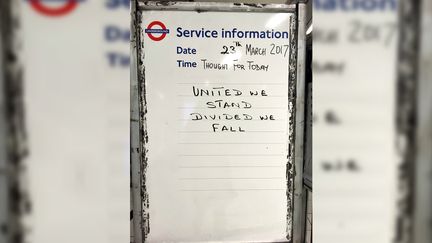 UNDERGROUND
Service information
Date 23th MARCH 2017
Time THOUGHT FOR TODAY
UNITED WE
STAND
DIVIDED WE
FALL